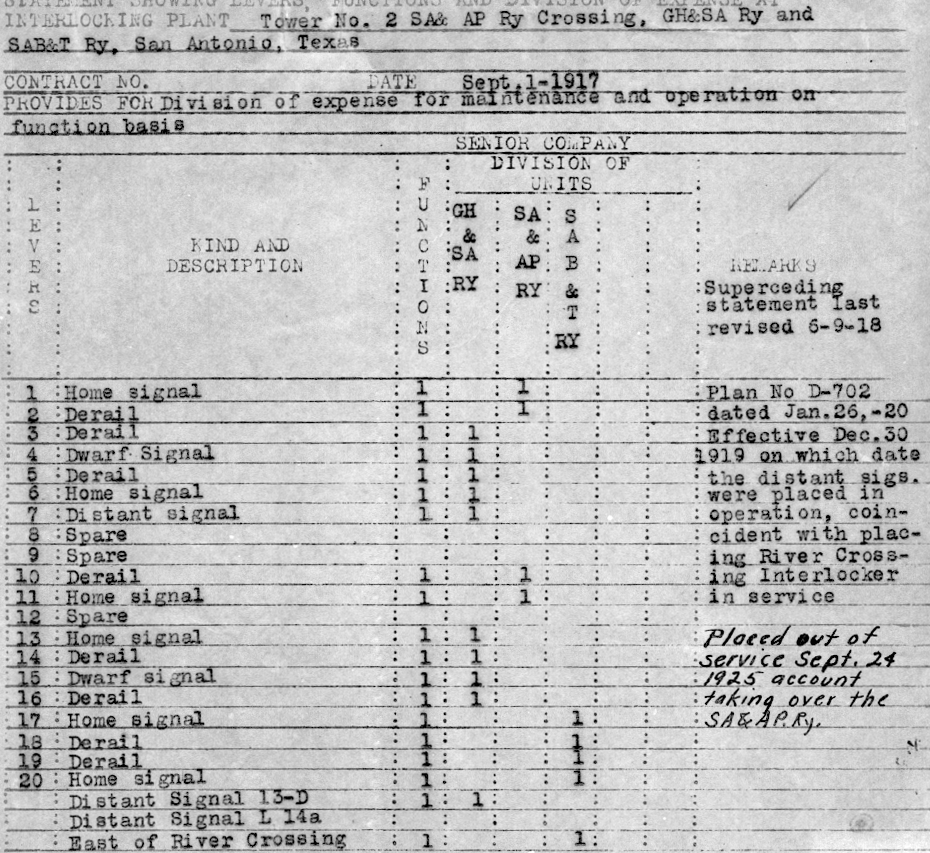 STATEMENT SHOWING LEVERS, FUNCTIONS AND DIVISION OF EXPENSE AT
INTERLOCKING PLANT Tower No. 2 SA& AP Ry Crossing, GH&SA Ry and
SAB&T Ry, San Antonio, Texas
CONTRACT NO. DATE Sept.1-1917
PROVIDES FOR Division of expense for maintenance and operation on
function basis
SENIOR COMPANY
DIVISION OF
UNITS
LEVERS
KIND AND
DESCRIPTION
FUNCTIONS
GH
&
SA
RY
SA
&
AP
RY
S
A
B
&
T
RY
REMARKS
Superceding
statement last
revised 6-9-18
1 Home signal 1 1 Plan No D-702
2 Derail 1 1 dated Jan.26,-20
3 Derail 1 1 Effective Dec.30
4 Dwarf Signal 1 1 1919 on which date
5 Derail 1 1 the distant sigs.
6 Home signal 1 1 were placed in
7 Distant signal 1 1 operation, coin-
8 Spare cident with plac-
9 Spare ing River Cross-
10 Derail 1 1 ing Interlocker
11 Home signal 1 1 in service
12 Spare
13 Home signal 1 1 Placed out of
14 Derail 1 1 service Sept. 24
15 Dwarf signal 1 1 1925 account
16 Derail 1 1 taking over the
17 Home signal 1 1 SA&AP.Ry.
18 Derail 1 1
19 Derail 1 1
20 Home signal 1 1
Distant Signal 13-D 1 1
Distant Signal L 14a
East of River Crossing 1 1